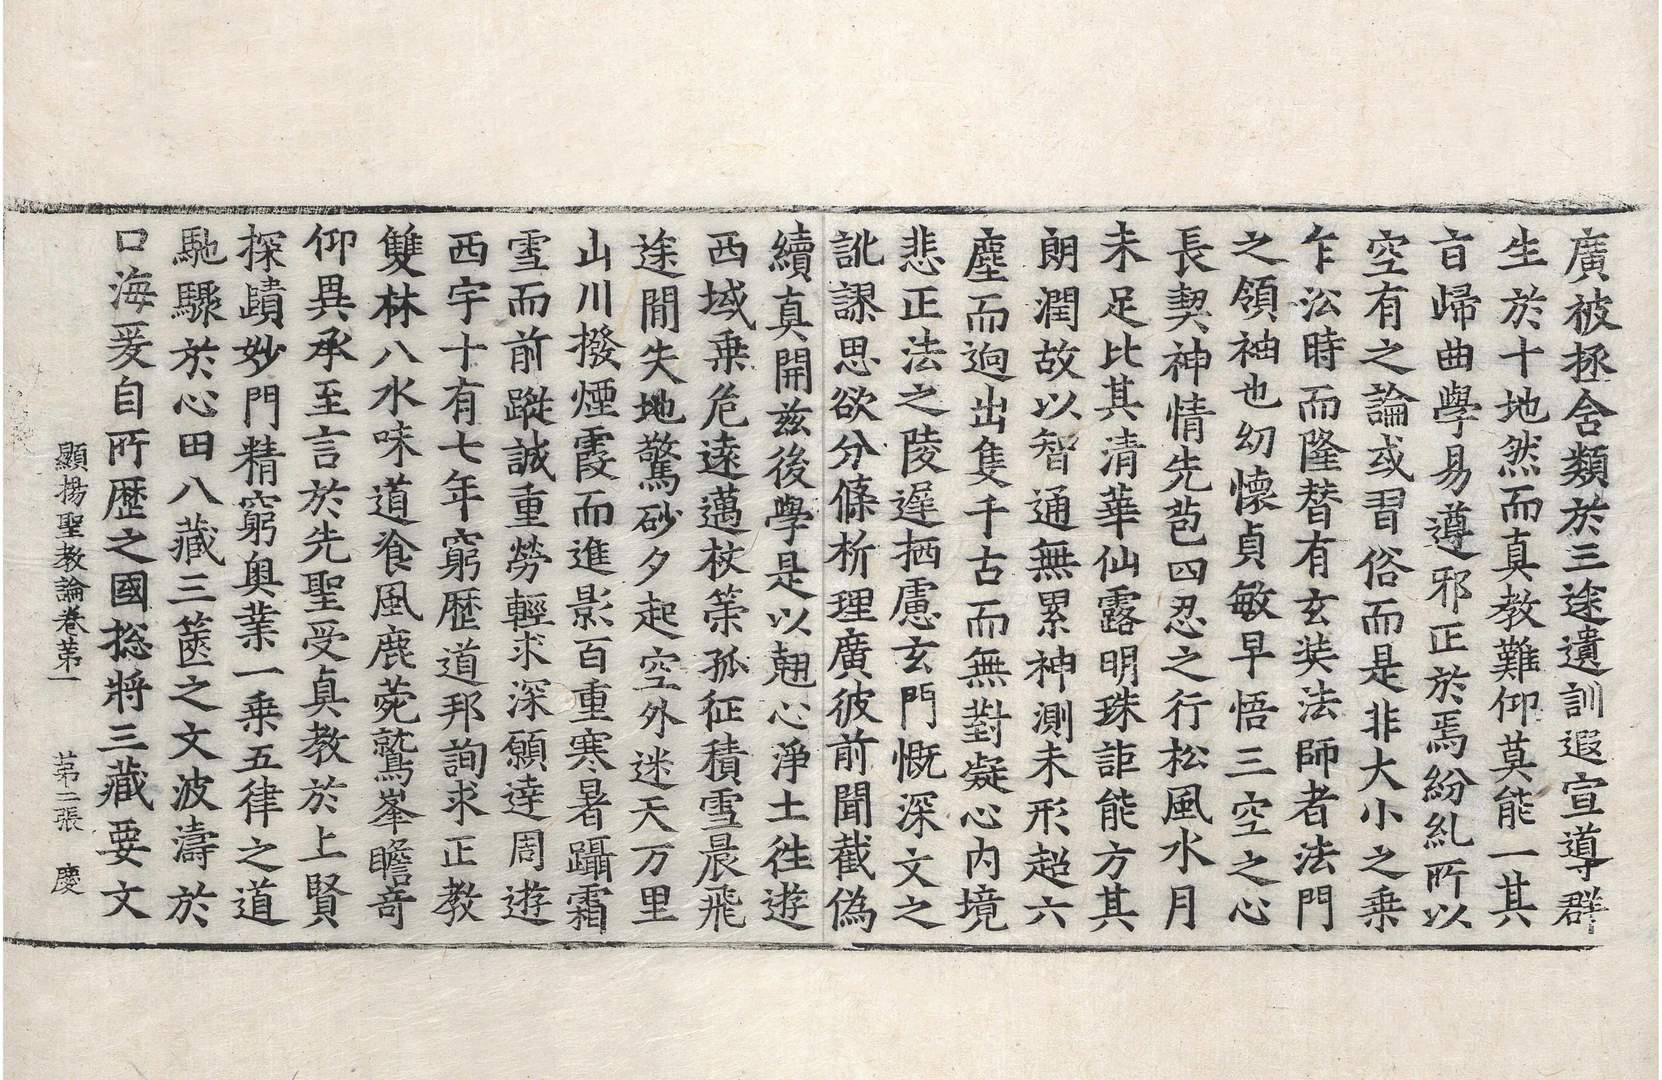 廣被拯含類於三途遺訓遐宣導群
生於十地然而真教難仰莫能一其
盲歸曲學易遵邪正於焉紛糺所以
空有之論或習俗而是非大小之乗
乍㳂時而隆替有玄奘法師者法門
之領袖也幼懷貞敏早悟三空之心
長契神情先苞四忍之行松風水月
未足比其清華仙露明珠詎能方其
朗潤故以智通無累神測未形超六
塵而逈出隻千古而無對凝心內境
悲正法之陵遲栖慮玄門慨深文之
訛謬思欲分條析理廣彼前聞截偽
續真開茲後學是以翹心淨土徃遊
西域乗危遠邁杖策孤征積雪晨飛
途閒失地驚砂夕起空外迷天万里
山川撥煙霞而進影百重寒暑躡霜
雪而前蹤誠重勞輕求深願達周遊
西宇十有七年窮歷道邦詢求正教
雙林八水味道飡風鹿菀鷲峯瞻竒
仰異承至言於先聖受真教於上賢
探賾妙門精窮奧業一乗五律之道
馳驟於心田八藏三篋之文波濤於
口海爰自所歷之國捴將三藏要文
顯揚聖教論卷苐一 苐二張 慶